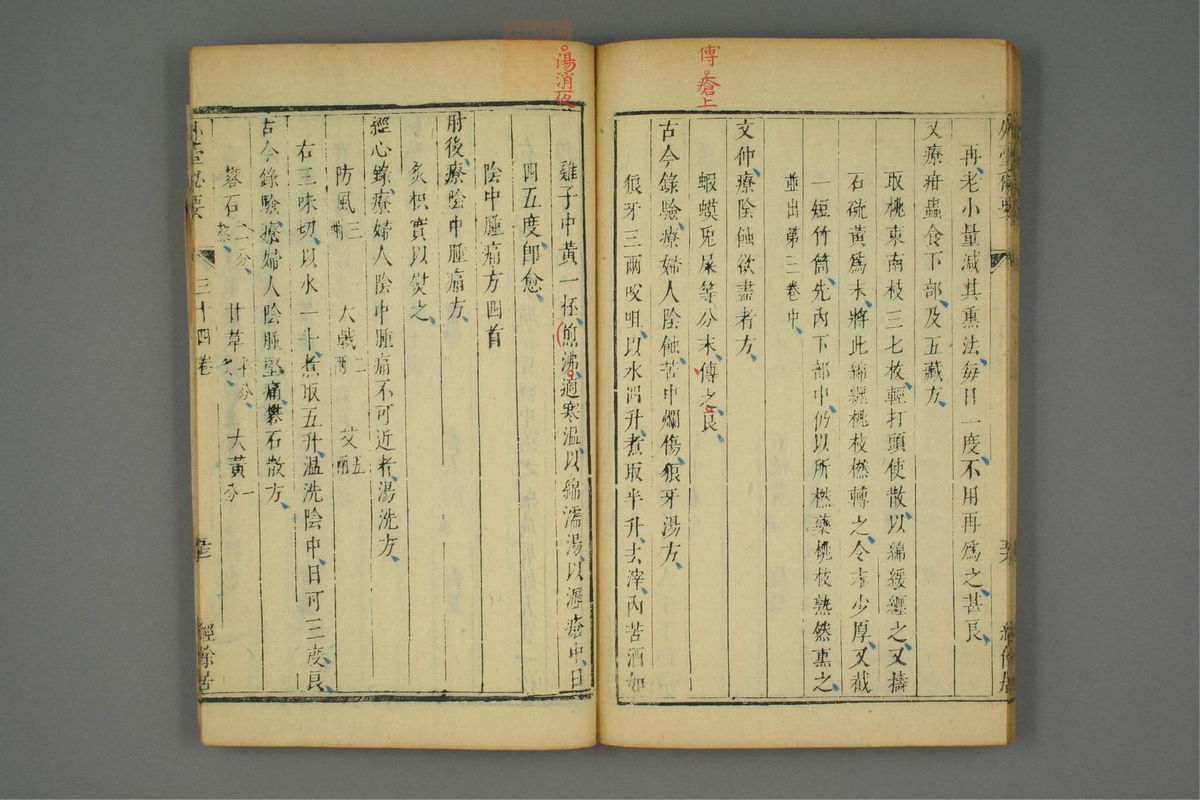 傅瘡上
再老小量減其熏法每日一度不用再爲之甚良
又療疳蟲食下部及五藏方
取桃東南枝三七枚輕打頭使散以綿緩纏之又擣
石硫黃爲末將此綿纏桃枝撚轉之令末少厚又截
一短竹筒先內下部中仍以所撚藥桃枝熟然熏之
並出第三卷中
文仲療陰蝕欲盡者方
蝦蟆兎屎等分末傅之良
古今錄驗療婦人陰蝕苦中爛傷狼牙湯方
狼牙三兩㕮咀以水四升煮取半升去滓內苦酒如
湯消夜
雞子中黃一杯煎沸適寒溫以綿濡湯以瀝瘡中日
四五度卽愈
陰中腫痛方四首
肘後療陰中腫痛方
炙枳實以熨之
經心錄療婦人陰中腫痛不可近者湯洗方
防風三兩 大戟二兩 艾五兩
右三味切以水一斗煮取五升溫洗陰中日可三度良
古今錄驗療婦人陰腫堅痛礬石散方
礬石二分熬 甘草十分炙 大黃一分
外臺秘要 三十四卷 經餘居